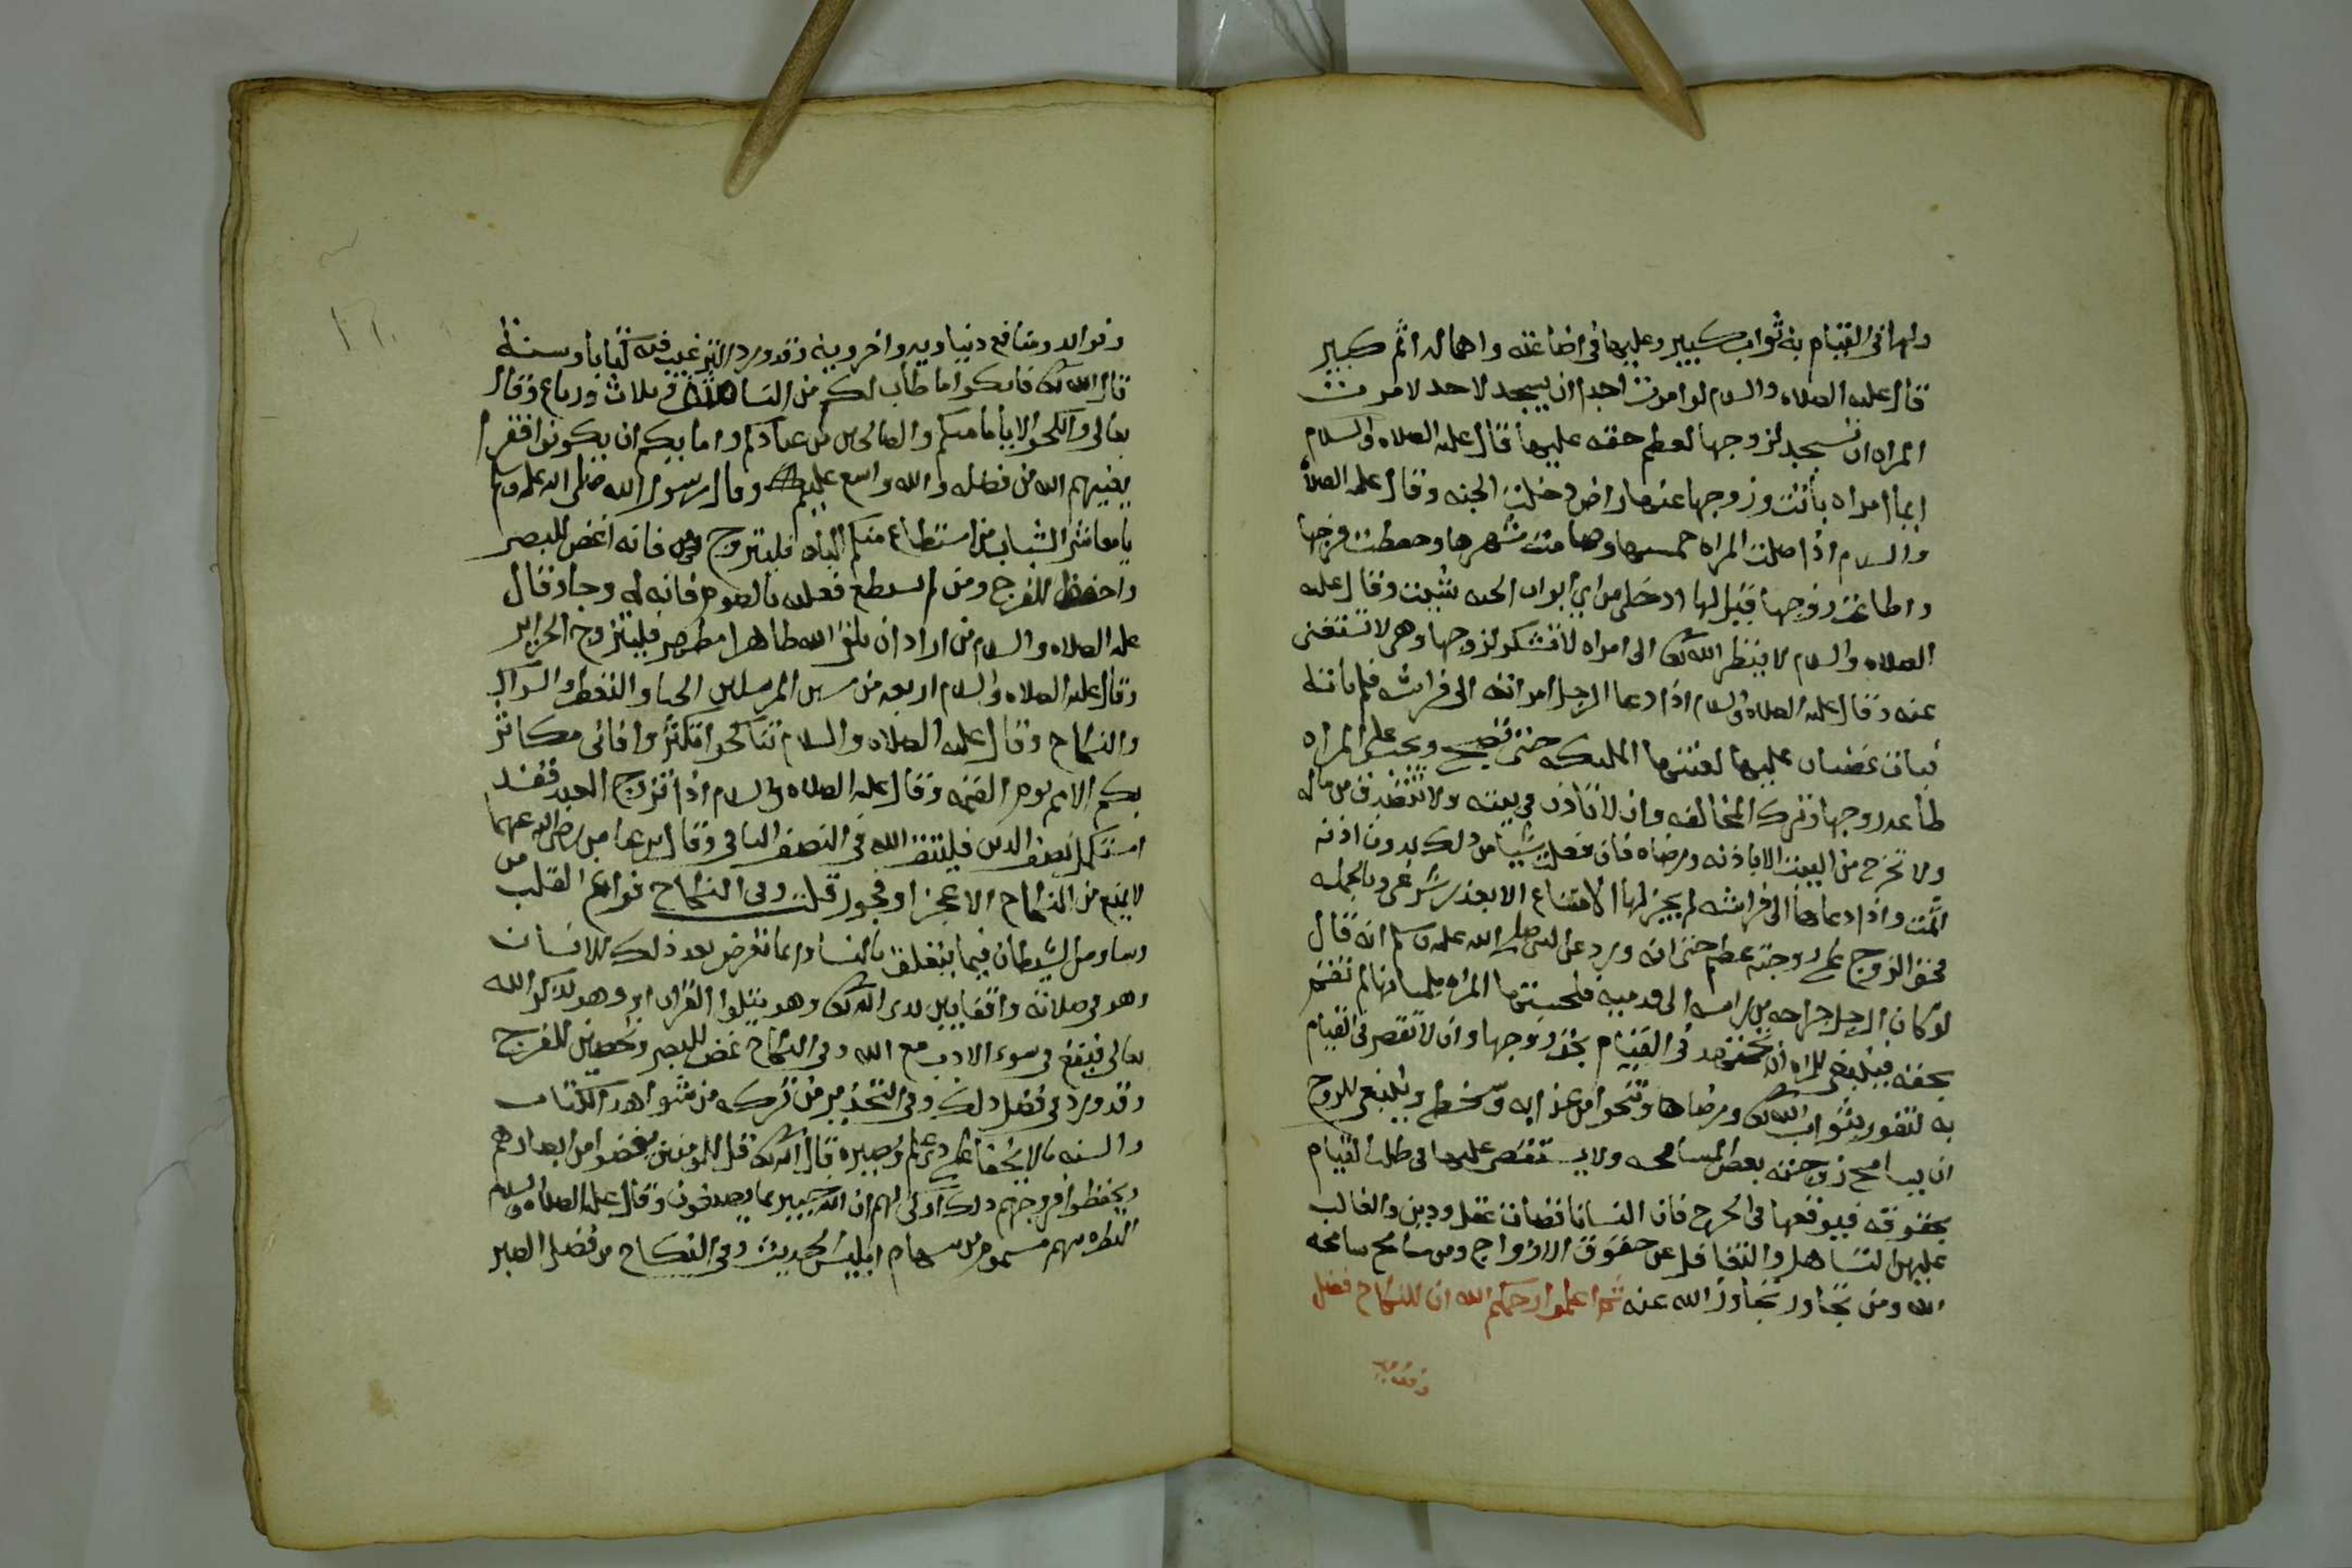 ولها في القيام به ثواب كبير وعليها في اضاعته واهماله اثم كبير
قال عليه الصلاه والسلام لو امرت احدا ان يسجد لاحد لامرت
المراه ان تسجد لزوجها لعظم حقه عليها قال عليه الصلاه والسلام
ايما امراه باتت وزوجها عنها راض دخلت الجنه وقال عليه الصلاه
والسلام اذا صلت المراه خمسها وصامت شهرها وحفظت فرجها
واطاعت زوجها قيل لها ادخلي من اي ابواب الجنه شيت وقال عليه
الصلاه والسلام لا ينظر الله تعالى الى امراه لا تشكر لزوجها وهي لا تستغني
عنه وقال عليه الصلاه والسلام اذا دعا الرجل امراته الى فراشه فلم تاته
فبات غضبان عليها لعنتها المليكه حتى تصبح ويجب على المراه
طاعه زوجها وترك المخالفه وان لا تاذن في بيته ولا تتصدق من ماله
ولا تخرج من البيت الا باذنه ورضاه فان فعلت شيا من ذلك بدون اذنه
اثمت واذا دعاها الى فراشه لم يجز لها الامتناع الا بعذر شرعي وبالجمله
فحق الزوج على زوجته عظيم حتى انه ورد عن النبي صلى الله عليه وسلم انه قال
لو كان الرجل جراحه من راسه الى قدميه فلحستها المراه بلسانها لم تقم
بحقه فينبغي للمراه ان تجتهد في القيام بحق زوجها وان لا تقصر في القيام
به لتفوز بثواب الله تعالى ورضاه وتنجوا من عذابه وسخطه وينبغي للزوج
ان يسامح زوجته بعض المسامحه ولا يستقصي عليها في طلب القيام
بحقوقه فيوقعها في الحرج فان النسا ناقصات عقل ودين والغالب
عليهن التساهل والتغافل عن حقوق الازواج ومن سامح سامحه
الله ومن تجاوز تجاوز الله عنه ثم اعلموا رحمكم الله ان للنكاح فضل
وفوايد
وفوايد ومنافع دنياويه واخرويه وقد ورد الترغيب فيه كتابا وسنة
قال الله تعالى فانكحوا ما طاب لكم من النسا مثنى وثلاث ورباع وقال
تعالى وانكحوا الايامى منكم والصالحين من عبادكم وامايكم ان يكونوا فقرا
يغنيهم الله من فضله والله واسع عليم وقال رسول الله صلى الله عليه وسلم
يا معاشر الشباب من استطاع منكم الباه فليتزوج فانه اغض للبصر
واحفظ للفرج ومن لم يستطع فعليه بالصوم فانه له وجا وقال
عليه الصلاه والسلام من اراد ان يلقى الله طاهرا مطهرا فليتزوج الحراير
وقال عليه الصلاه والسلام اربعه من سنن المرسلين الحيا والتعطر والسواك
والنكاح وقال عليه الصلاه والسلام تناكحوا تكثروا فاني مكاثر
بكم الامم يوم القيمه وقال عليه الصلاه والسلام اذا تزوج العبد فقد
استكمل نصف الدين فليتق الله في النصف الباقي وقال ابن عباس رضي الله عنهما
لا يمنع من النكاح الا عجز او فجور قلت وفي النكاح فراغ القلب من
وساوس الشيطان فيما يتعلق بالنسا وانما تعرض بعد ذلك للانسان
وهو في صلاته واقفا بين يدي الله تعالى وهو يتلوا القران او وهو يذكر الله
تعالى فيقع في سوء الادب مع الله وفي النكاح غض للبصر وتحصين للفرج
وقد ورد في فضل ذلك وفي التحذير من تركه من شواهد الكتاب
والسنه ما لا يخفا على ذي علم وبصيره قال الله تعالى قل للمومنين يغضوا من ابصارهم
ويحفظوا فروجهم ذلك ازكى لهم ان الله خبير بما يصنعون وقال عليه الصلاه والسلام
النظره سهم مسموم من سهام ابليس الحديث وفي النكاح من فضل الصبر